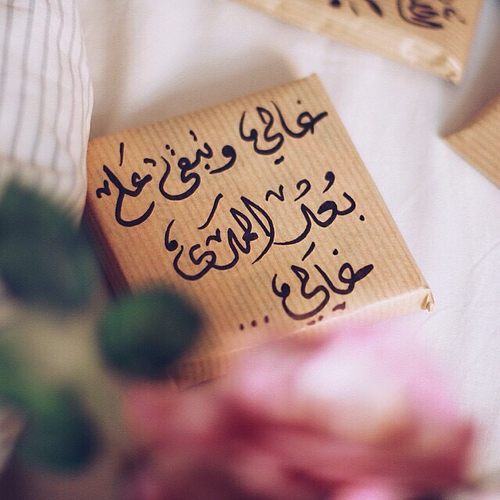 غالي وتبقى عَلى
بُعْد المَدى
غَالي ...